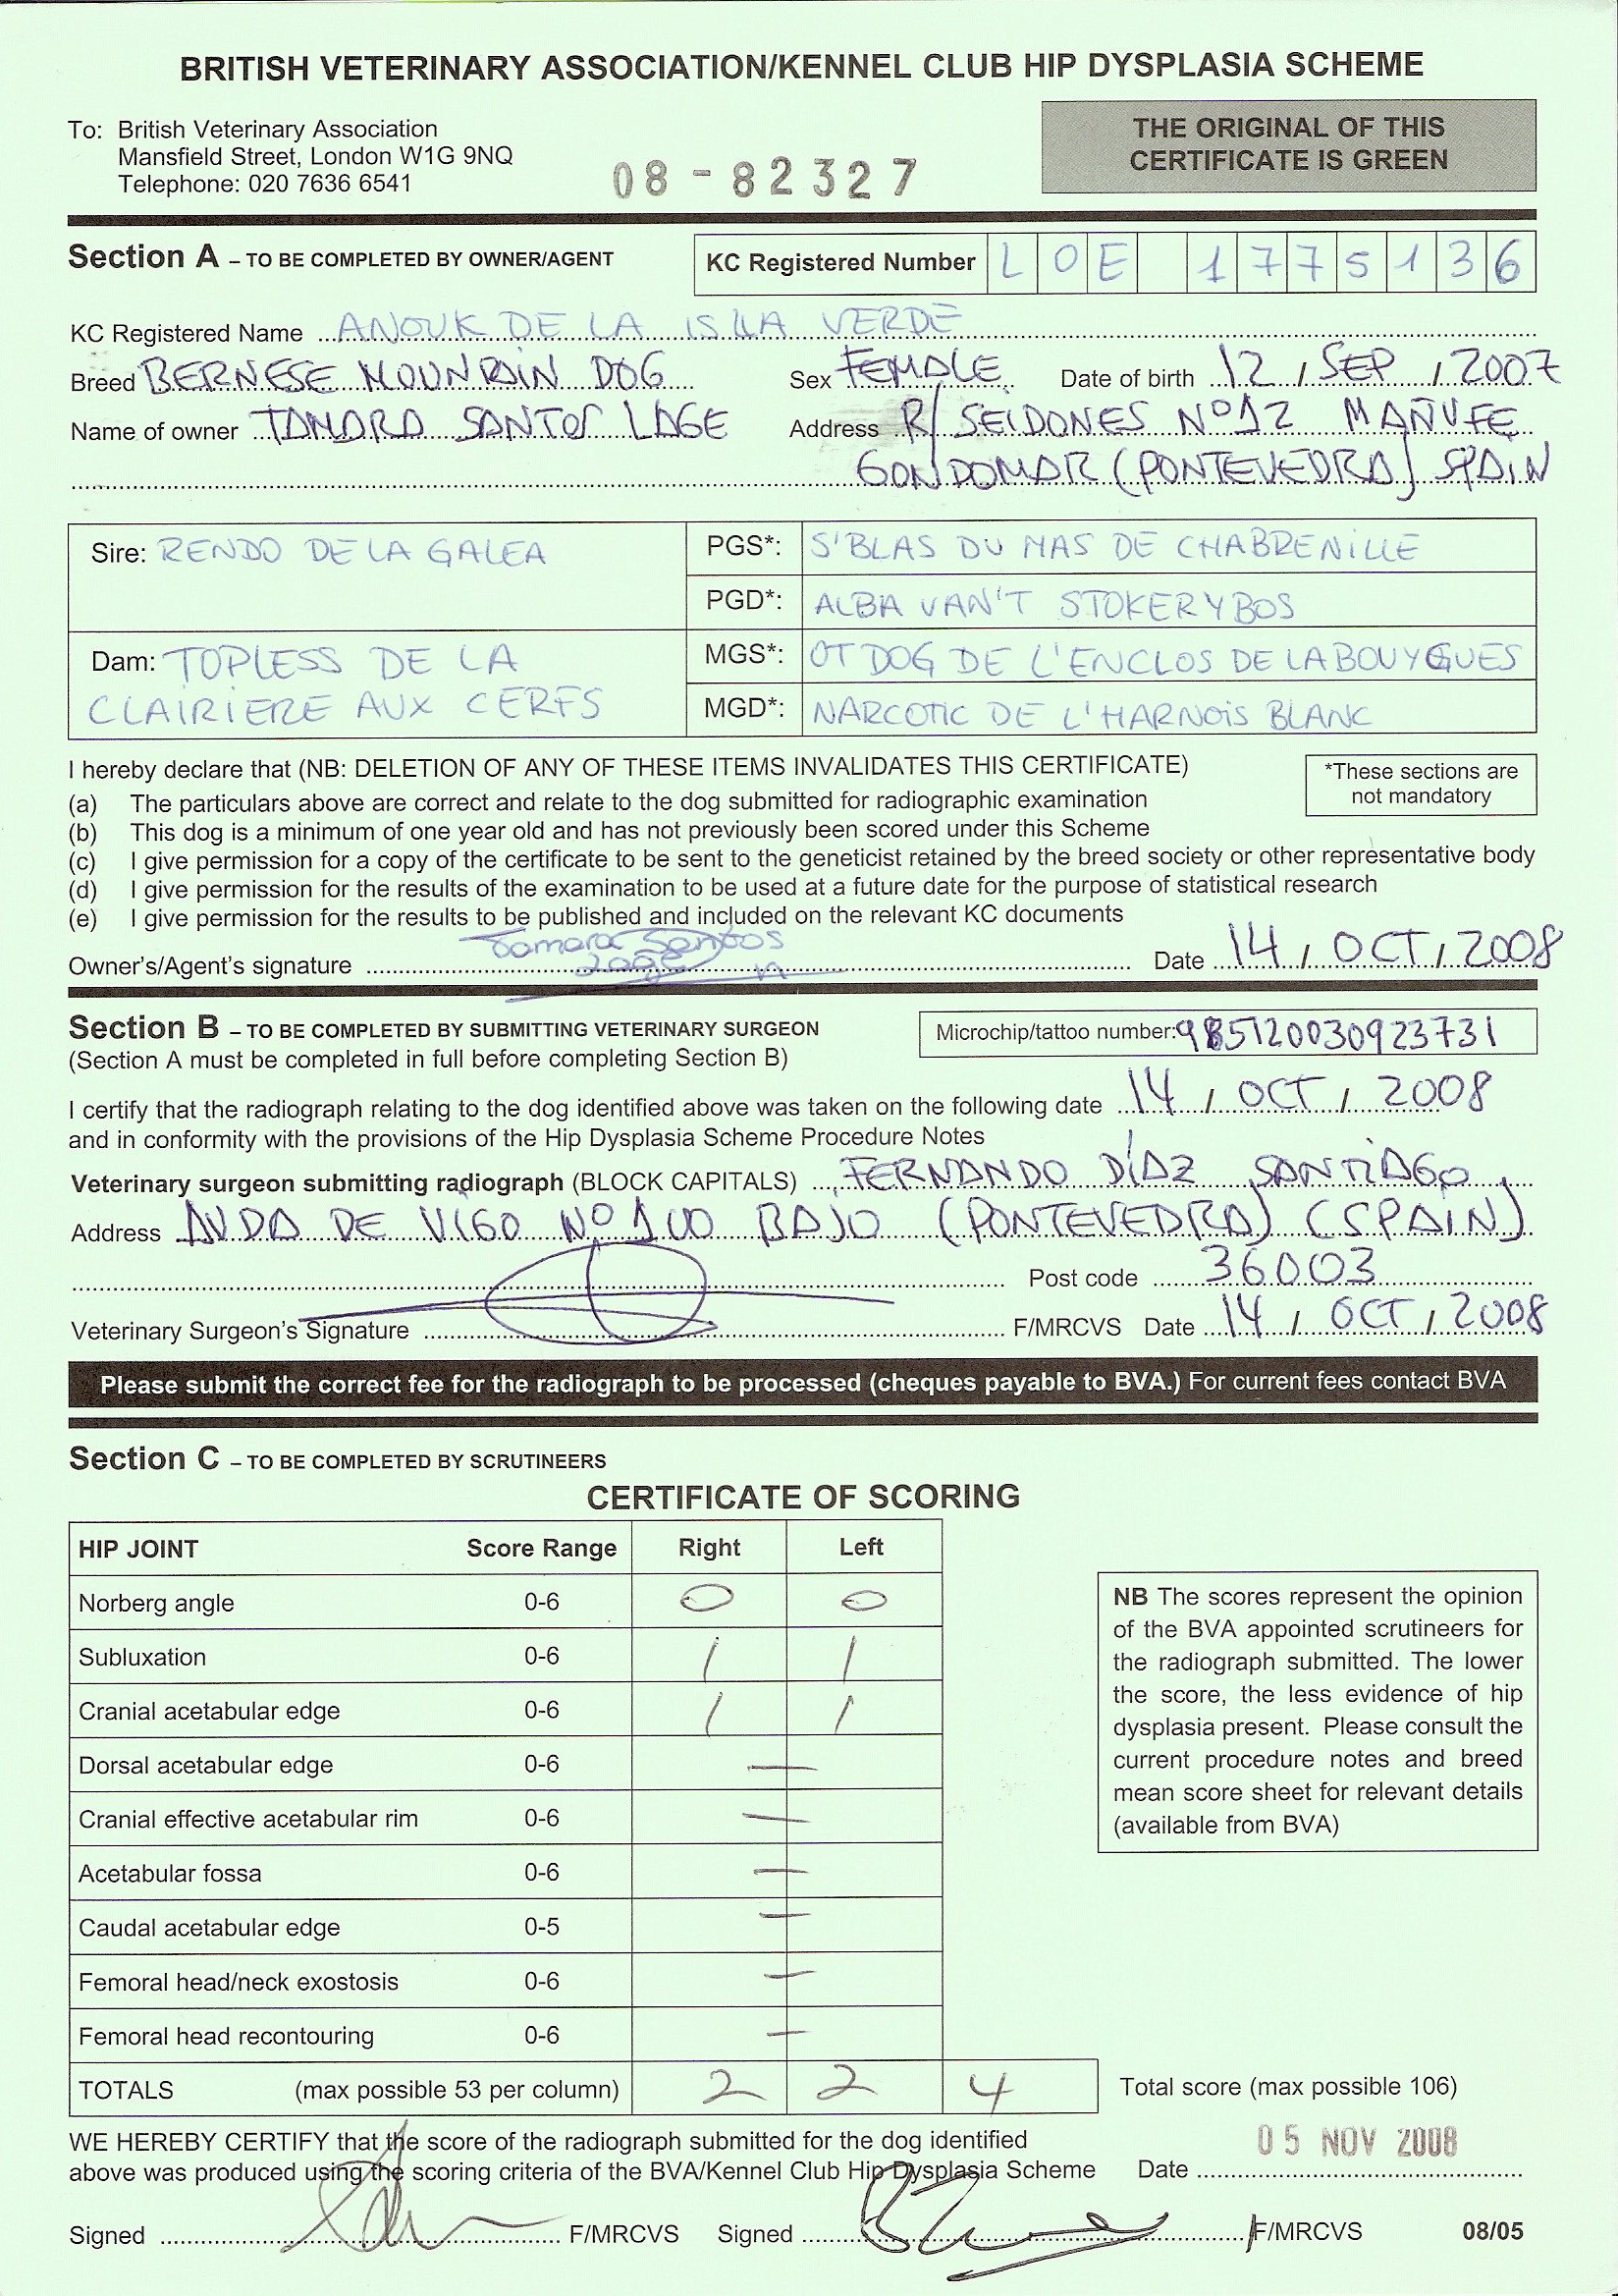 BRITISH VETERINARY ASSOCIATION/KENNEL CLUB HIP DYSPLASIA SCHEME
To: British Veterinary Association
Mansfield Street, London W1G 9NQ
Telephone: 020 7636 6541
08-82327
THE ORIGINAL OF THIS
CERTIFICATE IS GREEN
Section A – TO BE COMPLETED BY OWNER/AGENT
KC Registered Number LOE 1775136
KC Registered Name ANOUK DE LA ISLLA VERDE
Breed BERNESE MOUNRAIN DOG Sex FEMALE Date of birth 12 / SEP / 2007
Name of owner TAMARA SANTOS LAGE Address R/ SEIDONES Nº12 MAÑUFE
GONDOMAR (PONTEVEDRA) SPAIN
Sire: RENDO DE LA GALEA
PGS*: S'BLAS DU MAS DE CHABRENILLE
PGD*: ALBA VAN'T STOKERYBOS
Dam: TOPLESS DE LA
CLAIRIERE AUX CERFS
MGS*: OT DOG DE L'ENCLOS DE LABOUYGUES
MGD*: NARCOTIC DE L'HARNOIS BLANC
I hereby declare that (NB: DELETION OF ANY OF THESE ITEMS INVALIDATES THIS CERTIFICATE)
*These sections are
not mandatory
(a) The particulars above are correct and relate to the dog submitted for radiographic examination
(b) This dog is a minimum of one year old and has not previously been scored under this Scheme
(c) I give permission for a copy of the certificate to be sent to the geneticist retained by the breed society or other representative body
(d) I give permission for the results of the examination to be used at a future date for the purpose of statistical research
(e) I give permission for the results to be published and included on the relevant KC documents
Tamara Santos
Lage
Owner's/Agent's signature Date 14 / OCT / 2008
Section B – TO BE COMPLETED BY SUBMITTING VETERINARY SURGEON
(Section A must be completed in full before completing Section B)
Microchip/tattoo number: 985120030923731
I certify that the radiograph relating to the dog identified above was taken on the following date 14 / OCT / 2008
and in conformity with the provisions of the Hip Dysplasia Scheme Procedure Notes
Veterinary surgeon submitting radiograph (BLOCK CAPITALS) FERNANDO DÍAZ SANTIAGO
Address AVDA DE VIGO Nº 100 BAJO (PONTEVEDRA) (SPAIN)
Post code 36003
Veterinary Surgeon's Signature F/MRCVS Date 14 / OCT / 2008
Please submit the correct fee for the radiograph to be processed (cheques payable to BVA.) For current fees contact BVA
Section C – TO BE COMPLETED BY SCRUTINEERS
CERTIFICATE OF SCORING
HIP JOINT Score Range Right Left
Norberg angle 0-6 0 0
Subluxation 0-6 1 1
Cranial acetabular edge 0-6 1 1
Dorsal acetabular edge 0-6 —
Cranial effective acetabular rim 0-6 —
Acetabular fossa 0-6 —
Caudal acetabular edge 0-5 —
Femoral head/neck exostosis 0-6 —
Femoral head recontouring 0-6 —
TOTALS (max possible 53 per column) 2 2 4 Total score (max possible 106)
NB The scores represent the opinion
of the BVA appointed scrutineers for
the radiograph submitted. The lower
the score, the less evidence of hip
dysplasia present. Please consult the
current procedure notes and breed
mean score sheet for relevant details
(available from BVA)
WE HEREBY CERTIFY that the score of the radiograph submitted for the dog identified
above was produced using the scoring criteria of the BVA/Kennel Club Hip Dysplasia Scheme
Date 05 NOV 2008
Signed F/MRCVS Signed F/MRCVS 08/05